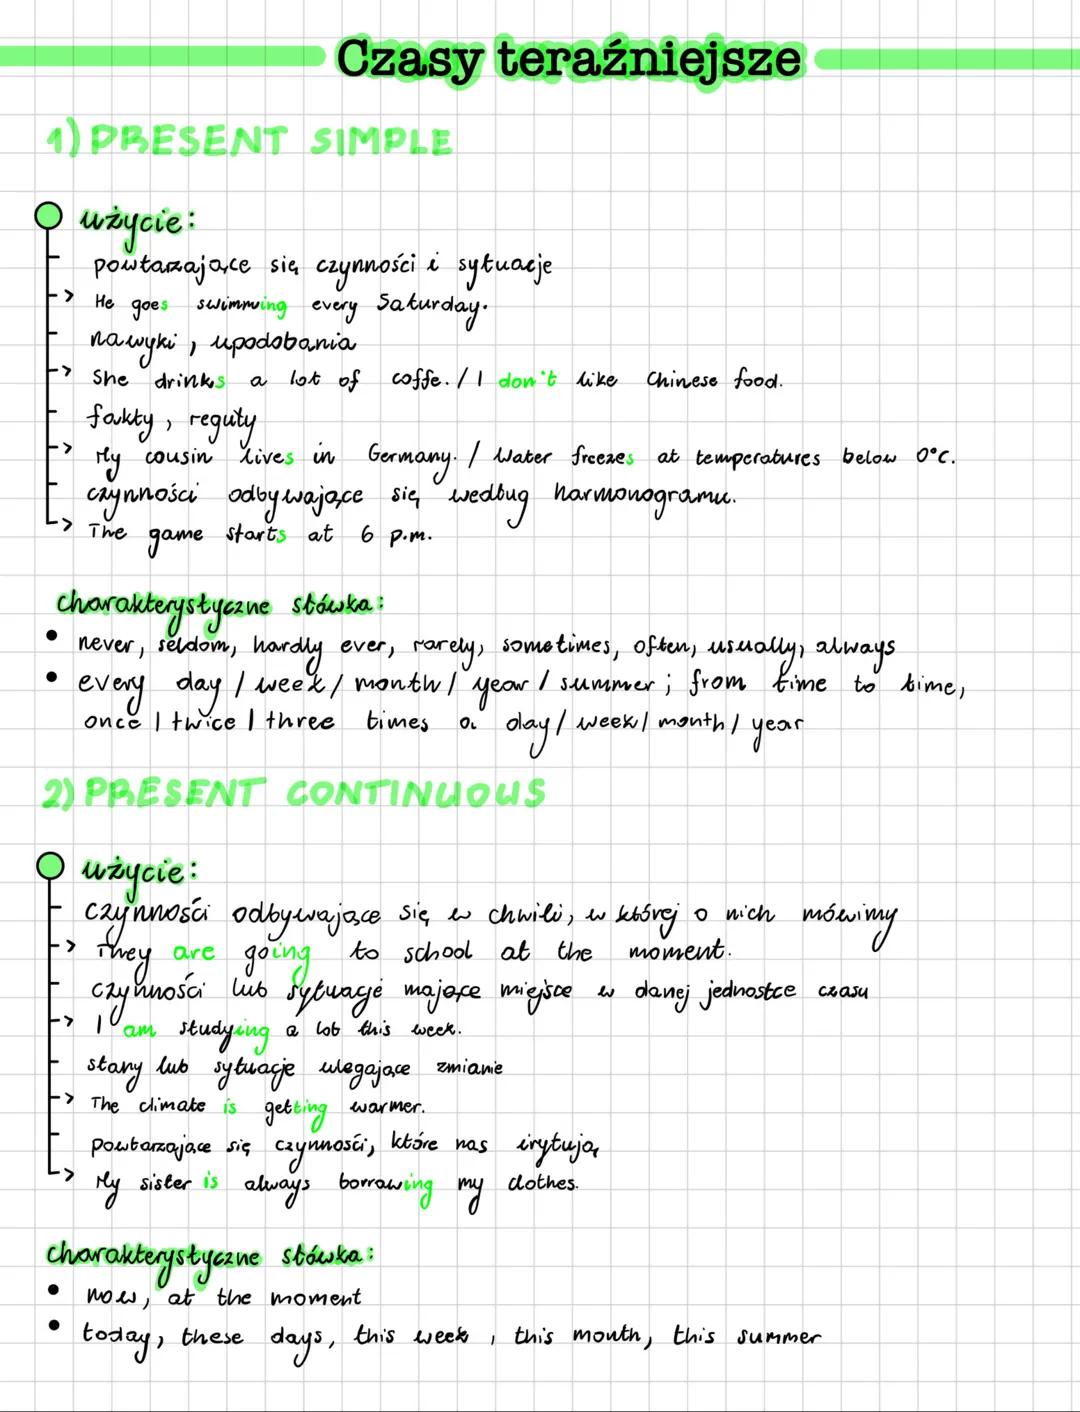 Czasy teraźniejsze
1) PRESENT SIMPLE
użycie:
powtarzające się czynności i sytuacje
He goes swimming every Saturday.
nawyki, upodobania
She drinks a lot of coffe. / I don't like Chinese food.
fakty, reguły
My cousin lives in Germany. / Water freezes at temperatures below 0°C.
czynności odbywające się według harmonogramu.
The game starts at 6 p.m.
charakterystyczne słówka:
never, seldom, hardly ever, rarely, sometimes, often, usually, always
every day / week / month / year / summer ; from time to time,
once / twice / three times a day / week / month / year
2) PRESENT CONTINUOUS
użycie:
czynności odbywające się w chwili, w której o nich mówimy
They are going to school at the moment.
czynności lub sytuacje mające miejsce w danej jednostce czasu
I am studying a lot this week.
stany lub sytuacje ulegające zmianie
The climate is getting warmer.
powtarzające się czynności, które nas irytują
My sister is always borrowing my clothes.
charakterystyczne słówka:
now, at the moment
today, these days, this week, this month, this summer